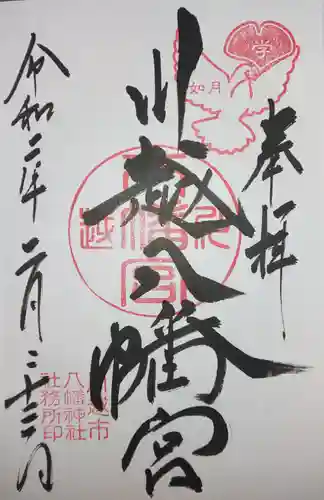 奉拝
川越八幡宮
令和二年二月二十三日
学
如月
川越八幡宮
川越市
八幡神社
社務所印